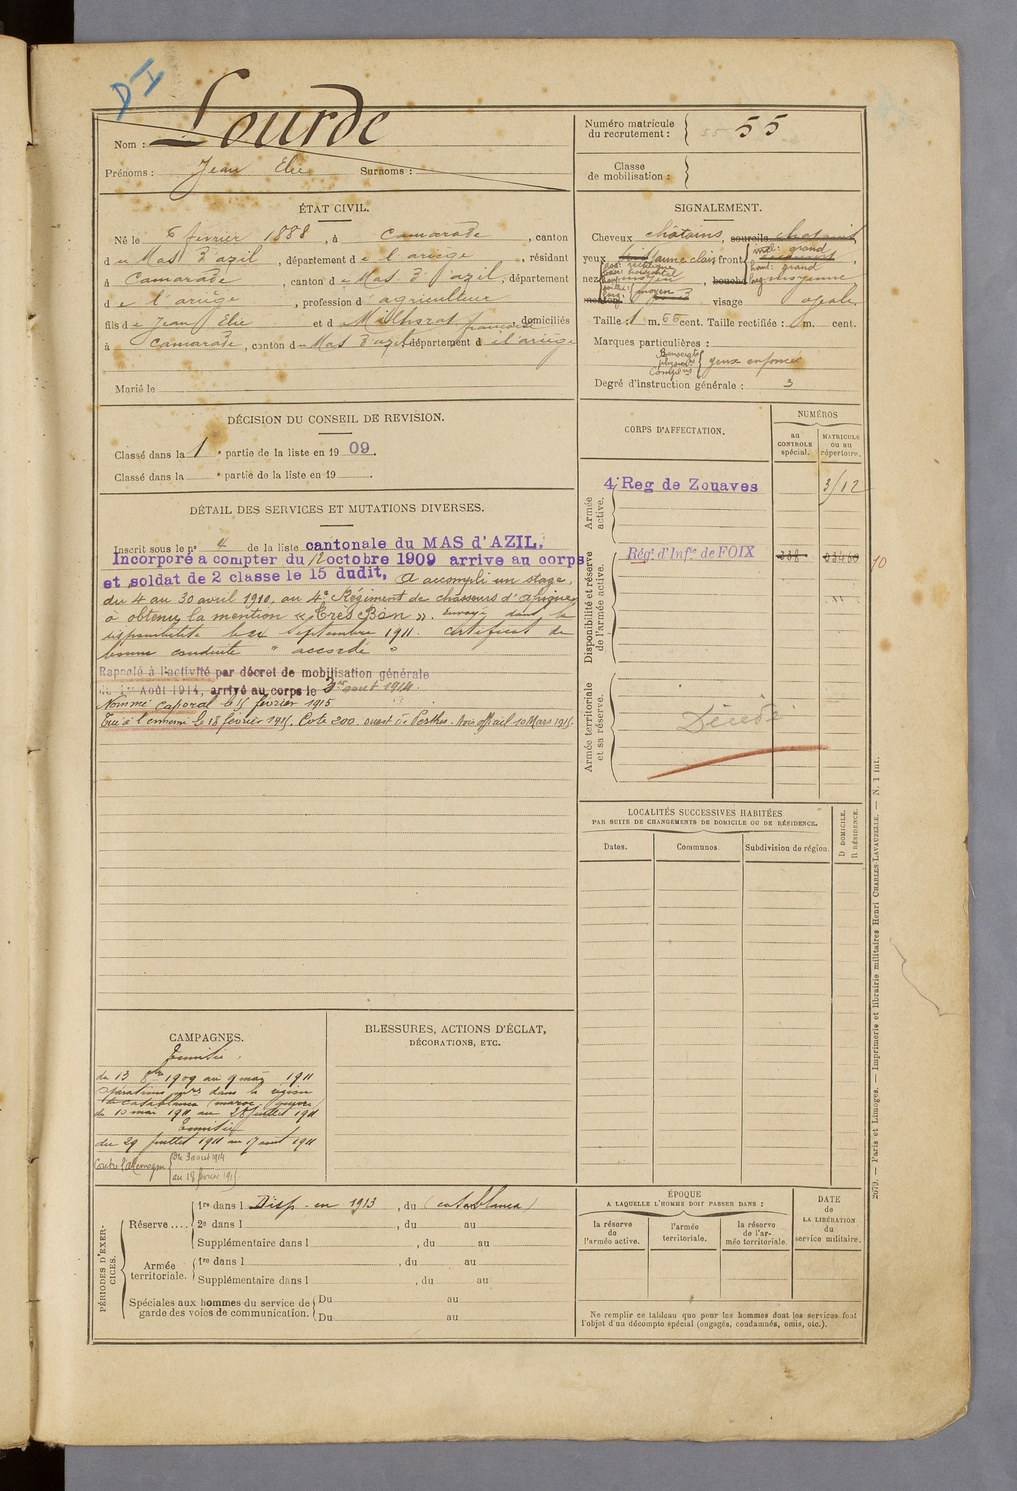 DI
Nom : Lourde
Prénoms : Jean Elie Surnoms :
Numéro matricule du recrutement : 55
Classe de mobilisation :
ÉTAT CIVIL.
Né le 6 février 1888, à Camarade, canton
du Mas d'azil, département de l'ariège, résidant
à Camarade, canton de Mas d'azil, département
de l'ariège, profession d'agriculteur
fils de Jean Elie et de Milhorat françoise, domiciliés
à Camarade, canton de Mas d'azil département de l'ariège
Marié le
SIGNALEMENT.
Cheveux châtains, sourcils chatains
yeux jaune clair front grand
nez moyen, bouche moyenne
menton visage ovale
Taille : 1 m. 66 cent. Taille rectifiée : m. cent.
Marques particulières :
yeux enfoncés
Degré d'instruction générale : 3
DÉCISION DU CONSEIL DE REVISION.
Classé dans la 1e partie de la liste en 1909.
Classé dans la e partie de la liste en 19 .
DÉTAIL DES SERVICES ET MUTATIONS DIVERSES.
Inscrit sous le n° 4 de la liste cantonale du MAS d'AZIL.
Incorporé à compter du 12 octobre 1909 arrivé au corps
et soldat de 2 classe le 15 dudit, a accompli un stage,
du 4 au 30 avril 1910, au 4e Régiment de chasseurs d'afrique
à obtenu la mention « Très Bien ». Envoyé dans la
disponibilité le 24 Septembre 1911. Certificat de
bonne conduite " accordé "
Rappelé à l'activité par décret de mobilisation générale
du 1er Août 1914, arrivé au corps le 3 aout 1914.
Nommé caporal le 15 février 1915
Tué à l'ennemi le 18 février 1915. Cote 200. ouest de Perthes. Avis officiel 10 Mars 1915.
CORPS D'AFFECTATION.
NUMÉROS
au CONTROLE spécial.
MATRICULE ou au répertoire.
Armée active.
4e Reg de Zouaves 3/12
Disponibilité et réserve de l'armée active.
Régt d'Infie de FOIX 338 03460 10
Armée territoriale et sa réserve.
Décédé
LOCALITÉS SUCCESSIVES HABITÉES
PAR SUITE DE CHANGEMENTS DE DOMICILE OU DE RÉSIDENCE.
Dates. Communes. Subdivision de région. D DOMICILE. R RÉSIDENCE.
CAMPAGNES.
Tunisie,
du 13 8bre 1909 au 9 mai 1911
opérations dans la région
de Casablanca (maroc)
du 10 mai 1911 au 28 juillet 1911
Tunisie
du 29 juillet 1911 au 17 aout 1911
Contre l'allemagne du 3 août 1914
au 18 février 1915.
BLESSURES, ACTIONS D'ÉCLAT,
DÉCORATIONS, ETC.
PÉRIODES D'EXERCICES.
Réserve.... 1re dans l Disp. en 1913, du (casablanca)
2e dans l , du au
Supplémentaire dans l , du au
Armée territoriale. 1re dans l , du au
Supplémentaire dans l , du au
Spéciales aux hommes du service de garde des voies de communication. Du au
Du au
ÉPOQUE
A LAQUELLE L'HOMME DOIT PASSER DANS :
la réserve de l'armée active.
l'armée territoriale.
la réserve de l'armée territoriale.
DATE DE LA LIBÉRATION du service militaire.
Ne remplir ce tableau que pour les hommes dont les services font
l'objet d'un décompte spécial (engagés, condamnés, omis, etc.).
2679. — Paris et Limoges. — Imprimerie et librairie militaires Henri CHARLES-LAVAUZELLE. — N. 1 int.